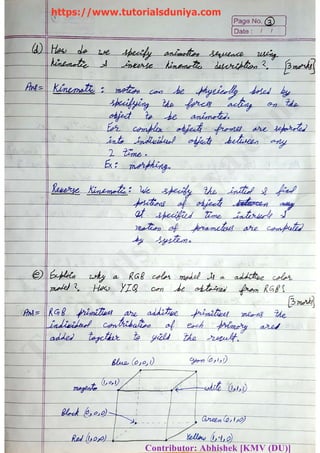 https://www.tutorialsduniya.com
Page No. 3
Date : / /
(d) How do we specify animation sequence using
kinematic & inverse kinematic description?. [3 marks]
Ans= Kinematic : motion can be physically based by
specifying the forces acting on the
object to be animated.
For complex objects frames are separated
into individual objects between any
2 time.
Ex: morphing.
Reverse Kinematic: We specify the initial & final
positions of objects between any
at specified time intervals &
motion of parameters are computed
by system.
(e) Explain why a RGB color model is a additive color
model?. How YIQ can be obtained from RGB?
[3 marks]
Ans= RGB primities are additive primities means the
individual contribution of each primary ared
added together to yield the result.
Blue (0,0,1)
cyan (0,1,1)
magenta (1,0,1)
white (1,1,1)
Black (0,0,0)
Green (0,1,0)
Red (1,0,0)
Yellow (1,1,0)
Contributor: Abhishek [KMV (DU)]